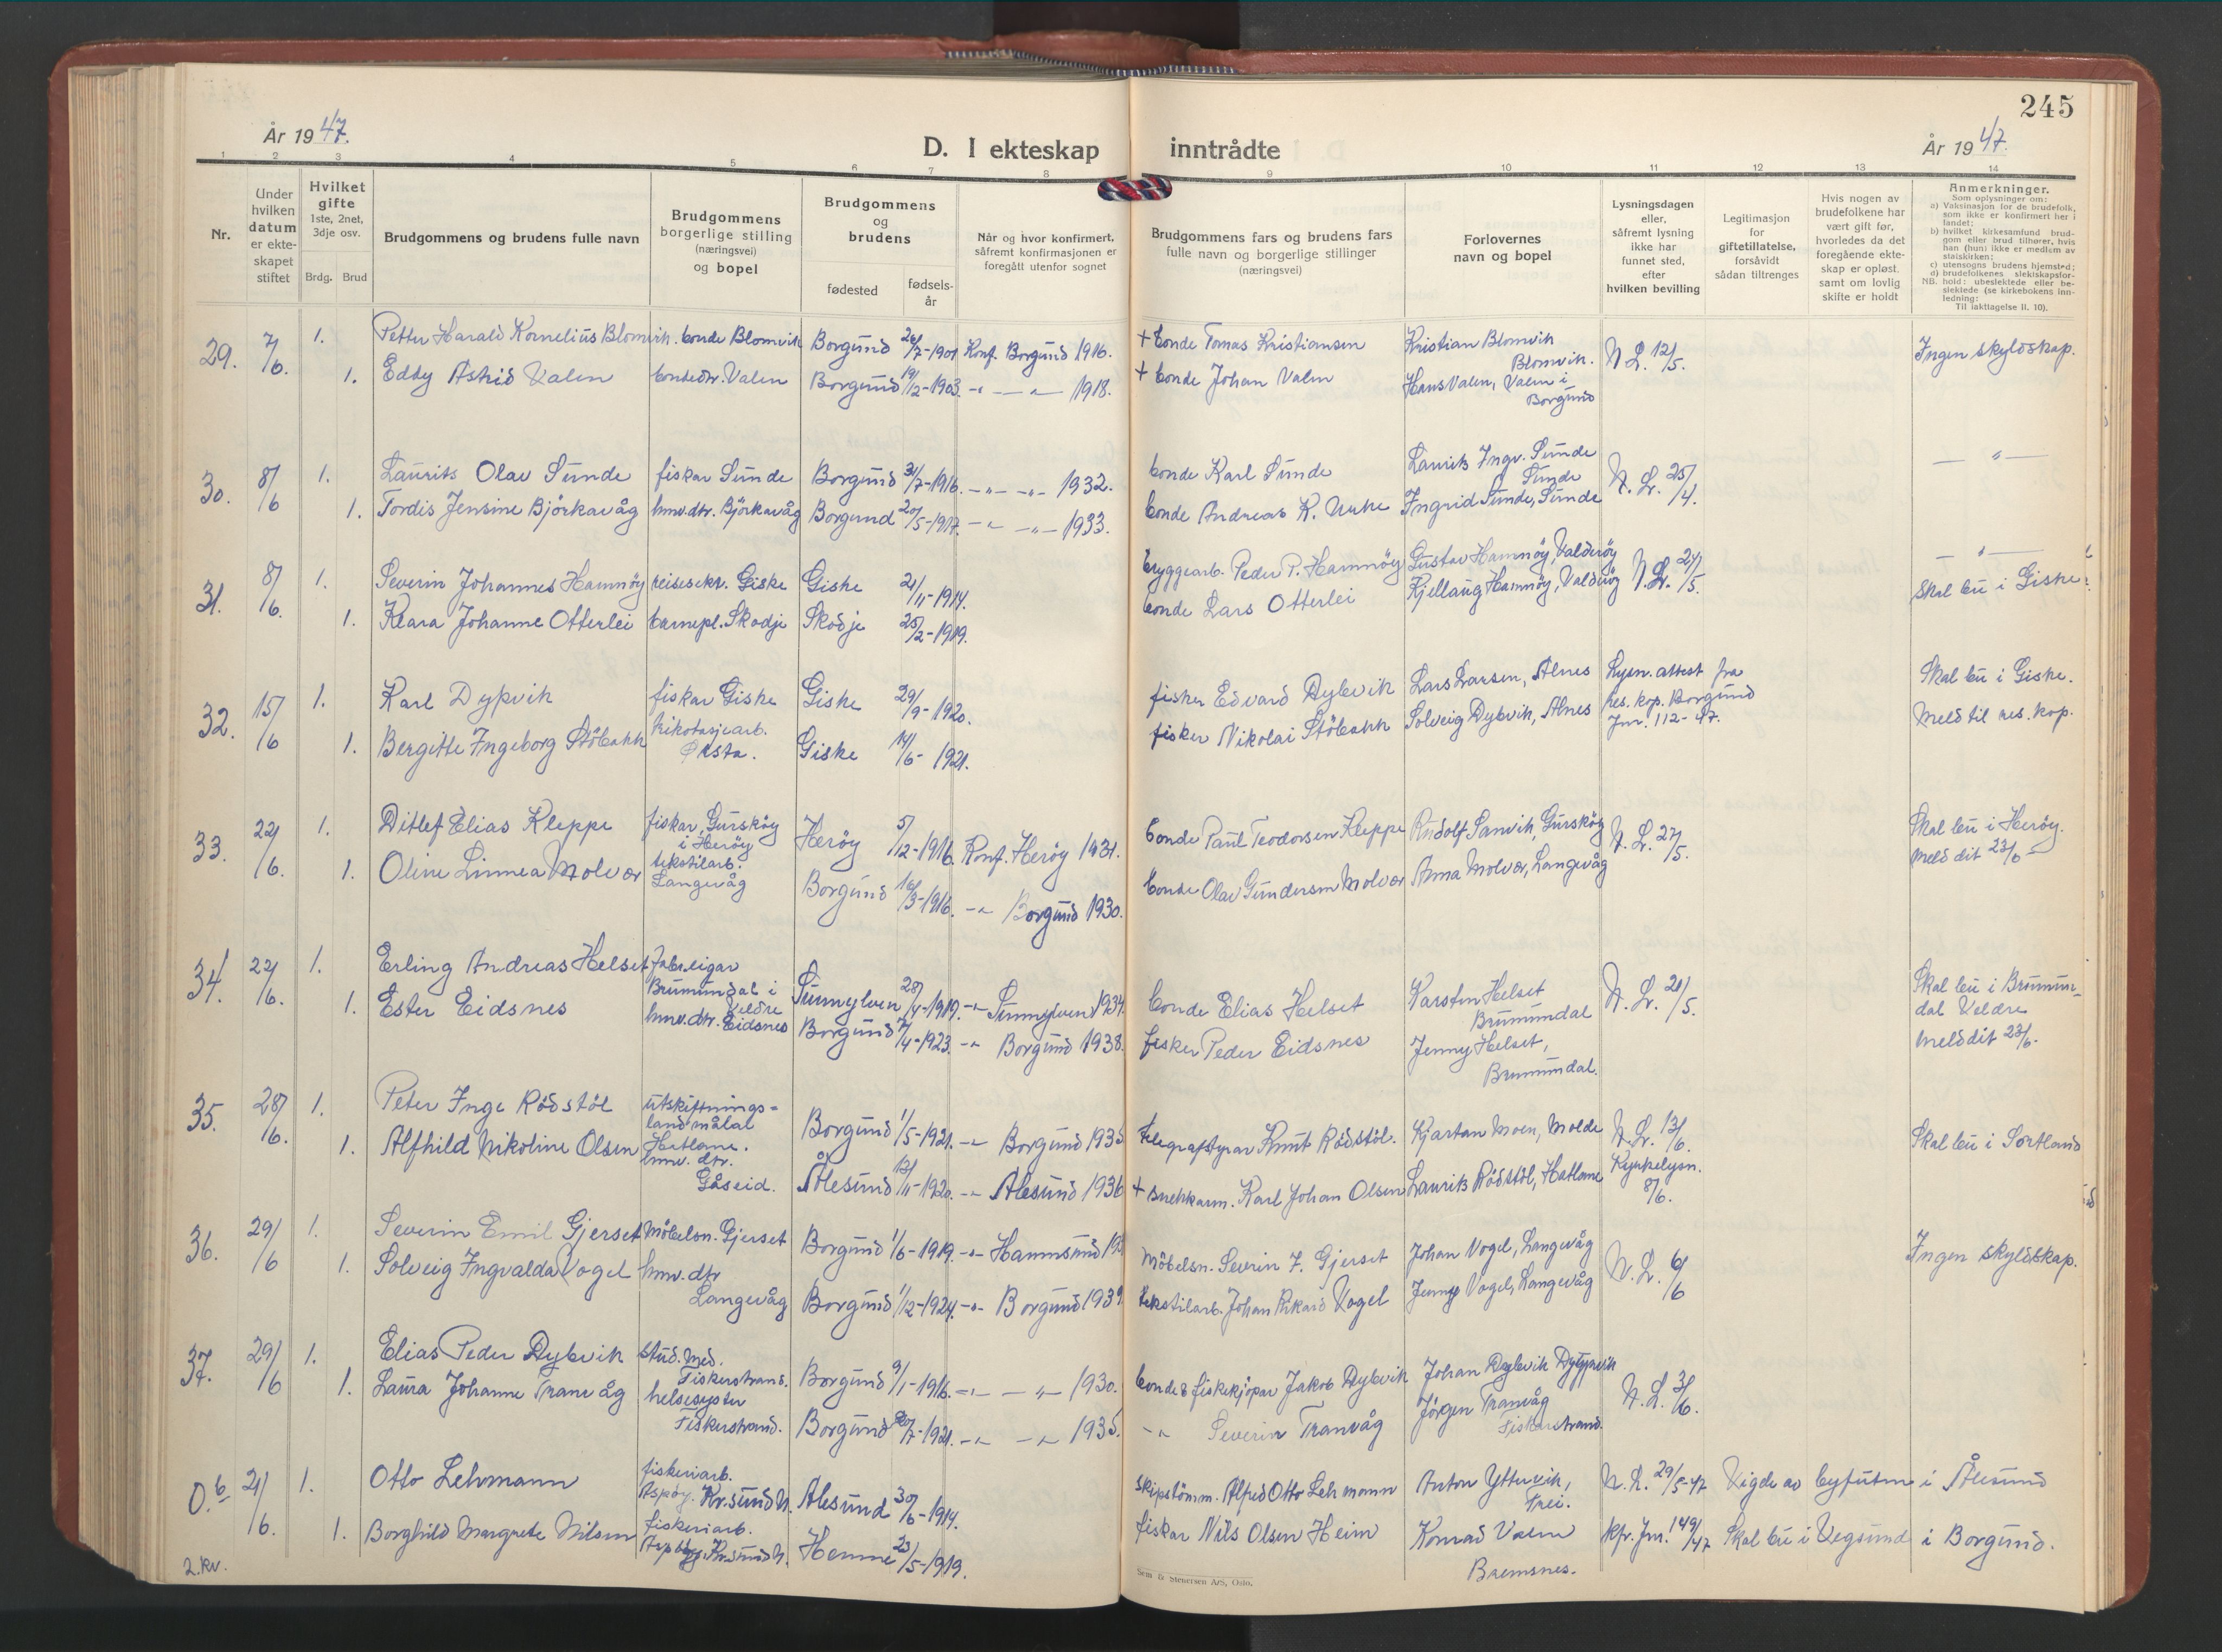 245
År 1947.
D. I ekteskap inntrådte
År 1947.
1 2 3 4 5 6 7 8 9 10 11 12 13 14
Nr.
Under hvilken datum er ekte-skapet stiftet
Hvilket gifte 1ste, 2net, 3dje osv.
Brdg. Brud
Brudgommens og brudens fulle navn
Brudgommens borgerlige stilling (næringsvei) og bopel
Brudgommens og brudens
fødested
fødsels-år
Når og hvor konfirmert, såfremt konfirmasjonen er foregått utenfor sognet
Brudgommens fars og brudens fars fulle navn og borgerlige stillinger (næringsvei)
Forlovernes navn og bopel
Lysningsdagen eller, såfremt lysning ikke har funnet sted, efter hvilken bevilling
Legitimasjon for giftetillatelse, forsåvidt sådan tiltrenges
Hvis nogen av brudefolkene har vært gift før, hvorledes da det foregående ekte-skap er opløst. samt om lovlig skifte er holdt
Anmerkninger.
Som oplysninger om:
a) Vaksinasjon for de brudefolk, som ikke er konfirmert her i landet;
b) hvilket kirkesamfund brud-gom eller brud tilhører, hvis han (hun) ikke er medlem av statskirken;
c) utensogns brudens hjemsted;
d) brudefolkenes slektskapsfor-hold: ubeslektede eller be-slektede (se kirkebokens inn-ledning:
NB.
Til iakttagelse II. 10).
29. 7/6. 1. Petter Harald Kornelius Blomvik. bonde Blomvik Borgund 26/7-1901 Konf. Borgund 1916. + bonde Tomas Kristiansen Kristian Blomvik Blomvik. N. L. 12/5. Ingen skyldskap.
1. Eddy Astrid Valen bondedtr. Valen Borgund 19/12-1903. -"- — " — 1918. + bonde Johan Valen Hans Valen, Valen i Borgund
30. 8/6 1. Laurits Olav Sunde fiskar Sunde Borgund 31/7-1916. -"- -"- 1932. bonde Karl Sunde Laurits Ingv. Sunde Sunde N. L. 25/4. — " —
1. Tordis Jensine Björkavåg hmv.dtr. Björkavåg Borgund 20/5-1917. -"- -"- 1933. bonde Andreas K. Ingrid Sunde, Sunde
31. 8/6. 1. Severin Johannes Hamnöy reisesekr. Giske Giske 21/11-1914. bryggearb. Peder P. Hamnöy Gustav Hamnöy, Valderöy N. L. 21/5. — " —
1. Klara Johanne Otterlei barnepl. Skodje Skodje 25/2-1919. bonde Lars Otterlei Kjellaug Hamnöy, Valderöy Skal bu i Giske.
32. 15/6 1. Karl Dybvik fiskar Giske Giske 29/9-1920. fisker Edvard Dybvik Lars Larsen, Alnes Lysn. attest fra res. kap. Borgund Jnr. 112-47. Skal bu i Giske.
1. Bergitte Ingeborg Stöbakk trikotasjearb. Ørsta. Giske 14/6-1921. fisker Nikolai Stöbakk Solveig Dybvik, Alnes Meld til res. kap.
33. 22/6. 1. Ditlef Elias Kleppe fiskar, Gurskøy i Herøy Herøy 5/12-1916. Konf. Herøy 1931. bonde Paul Teodorsen Kleppe Rudolf Sanvik, Gurskøy N. L. 27/5. Skal bu i Herøy. Meld dit 23/6
1. Oline Linnea Molvær tekstilarb. Langevåg Borgund 16/3-1916. -"- Borgund 1930. bonde Olav Gundersen Molvær Anna Molvær, Langevåg
34. 22/6. 1. Erling Andreas Helset fabr.eigar Brumundal i Veldre Sunnylven 28/4-1919. -"- Sunnylven 1934. bonde Elias Helset Karsten Helset Brumundal N. L. 21/5. Skal bu i Brumun-dal Veldre
1. Ester Eidsnes hmv.dtr. Eidsnes Borgund 7/4-1923. -"- Borgund 1938. fisker Peder Eidsnes Jenny Helset, Brumundal. Meld dit 23/6.
35. 28/6. 1. Peter Inge Rödstöl utskiftnings-landmålar Hatlane. Borgund 1/5-1921. -"- Borgund 1935 telegrafstyrar Knut Rödstöl. Kjartan Moen, Molde N. L. 13/6. Skal bu i Sortland
1. Alfhild Nikoline Olsen hmv. dtr. Gåseid. Ålesund 12/11-1920. -"- Ålesund 1936 + snekkarm. Karl Johan Olsen Laurits Rödstöl, Hatlane Kyrkelysn. 8/6.
36. 29/6 1. Severin Emil Gjerset Möbelsn. Gjerset Borgund 1/6-1919. -"- Hamnsund Möbelsn. Severin J. Gjerset Johan Vogel, Langevåg N. L. 6/6 Ingen skyldskap.
1. Solveig Ingvalda Vogel hmv. dtr Langevåg Borgund 1/12-1924. -"- Borgund 1939 tekstilarb. Johan Rikard Vogel Jenny Vogel, Langevåg
37. 29/6 1. Elias Peder Dybvik stud. med. Fiskerstrand. Borgund 9/1-1916. -"- — " — 1930. bonde & fiskekjöpar Jakob Dybvik Johan Dybvik N. L. 3/6.
1. Laura Johanne Tranvåg helsesyster Fiskerstrand. Borgund 20/7-1921. -"- -"- 1935. -"- Severin Tranvåg Jörgen Tranvåg Fiskarstrand.
0.6 21/6. 1. Otto Lehmann fiskeriarb. Aspöy. Kr.sund N. Ålesund 30/6-1914. skipstömm. Alfred Otto Lehmann Anton Yttervik, Frei. N. L. 29/5-47 Vigde av byfuten i Ålesund
1. Borghild Margrete Nilsen fiskeriarb. Kr.sund N. Hemne 23/5-1919. fiskar Nils Olsen Heim Konrad Valen Bremsnes. Kfr. Jnr. 149/47 Skal bu i Vegsund i Borgund.
2. kv.
Sem & Stenersen A/S, Oslo.